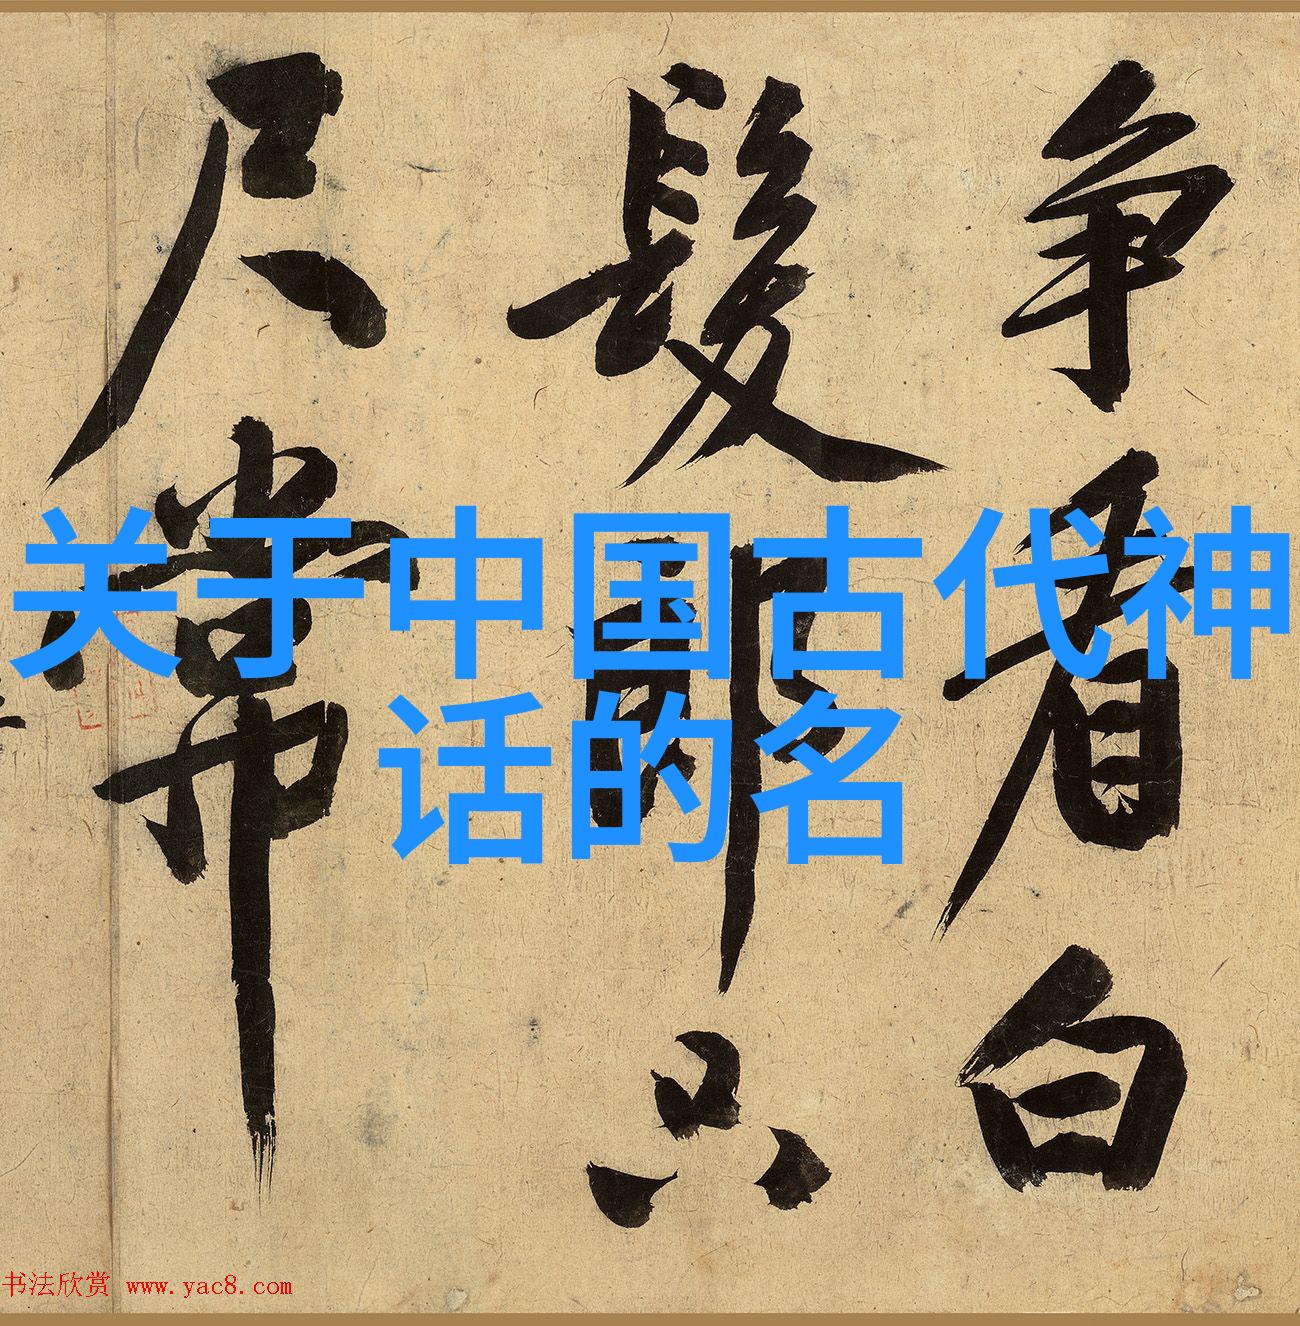 关于中国古代神
话的名
争看白
髮郎只
尺常
书法欣赏 www.yac8.com